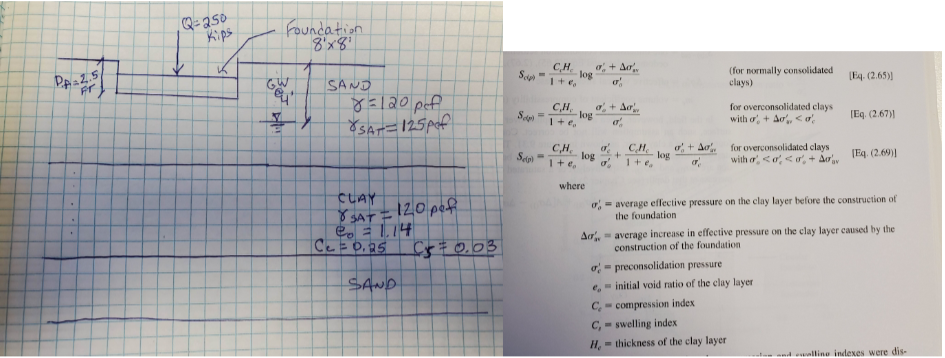 Q=250
Kips
Foundation
8'x8'
Df=2.5
FT
GW
@
4'
SAND
γ=120 pcf
γSAT=125pcf
CLAY
γSAT=120 pcf
eo = 1.14
Cc=0.25 Cs=0.03
SAND
Sc(p) = CcHc / 1 + eo log σ'o + Δσ'av / σ'o (for normally consolidated clays) [Eq. (2.65)]
Sc(p) = CsHc / 1 + eo log σ'o + Δσ'av / σ'o for overconsolidated clays with σ'o + Δσ'av < σ'c [Eq. (2.67)]
Sc(p) = CsHc / 1 + eo log σ'c / σ'o + CcHc / 1 + eo log σ'o + Δσ'av / σ'c for overconsolidated clays with σ'o < σ'c < σ'o + Δσ'av [Eq. (2.69)]
where
σ'o = average effective pressure on the clay layer before the construction of
the foundation
Δσ'av = average increase in effective pressure on the clay layer caused by the
construction of the foundation
σ'c = preconsolidation pressure
eo = initial void ratio of the clay layer
Cc = compression index
Cs = swelling index
Hc = thickness of the clay layer
and swelling indexes were dis-